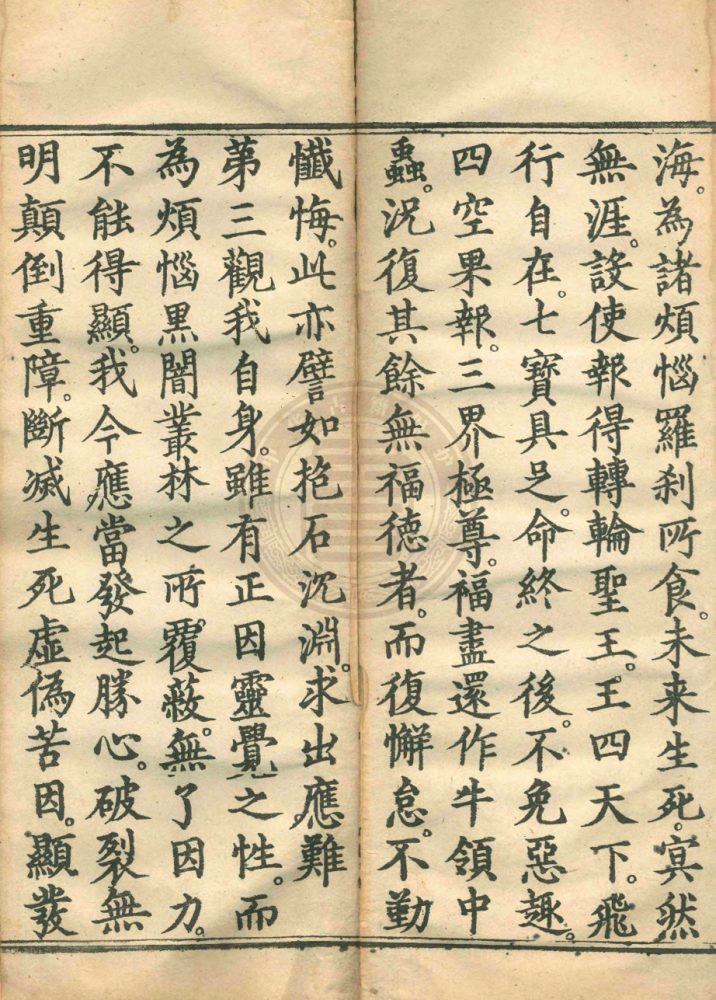 海。為諸煩惱羅刹所食。未来生死。㝠然
無涯。設使報得轉輪聖王。王四天下。飛
行自在。七寶具足。命終之後。不免惡趣。
四空果報。三界極尊。福盡還作牛領中
蟲。況復其餘無福德者。而復懈怠。不勤
懺悔。此亦譬如抱石沉淵。求出應難
第三觀我自身。雖有正因靈覺之性。而
為煩惱黑闇叢林之所覆蔽。無了因力。
不能得顯。我今應當發起勝心。破裂無
明顛倒重障。斷滅生死虛偽苦因。顯發